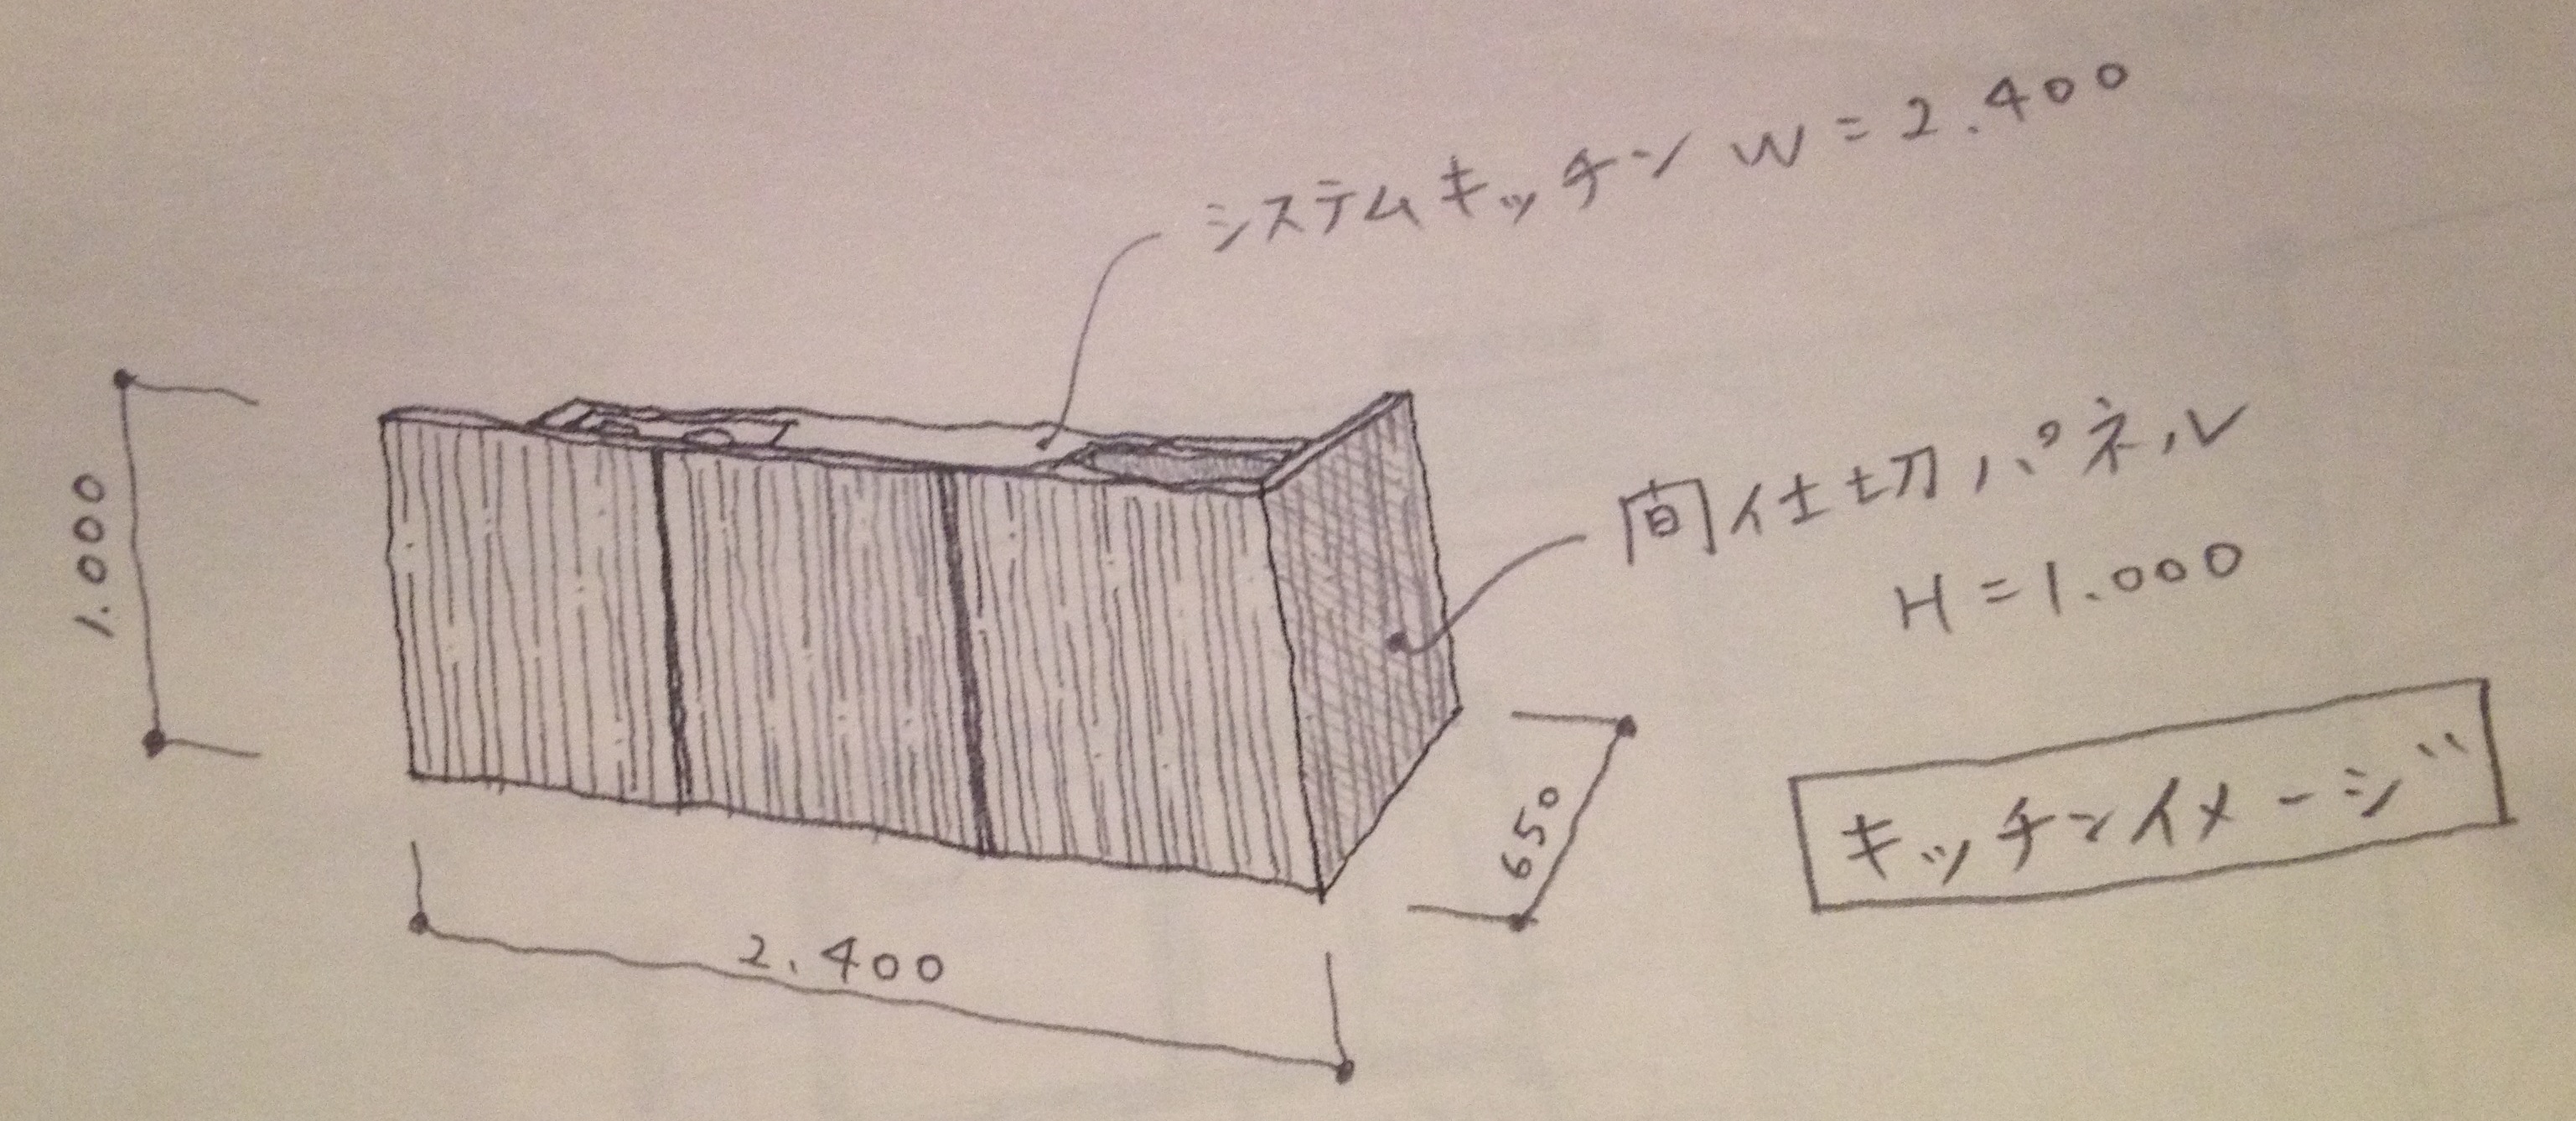 システムキッチン W=2.400
1.000
間仕切パネル
H=1.000
650
キッチンイメージ
2.400